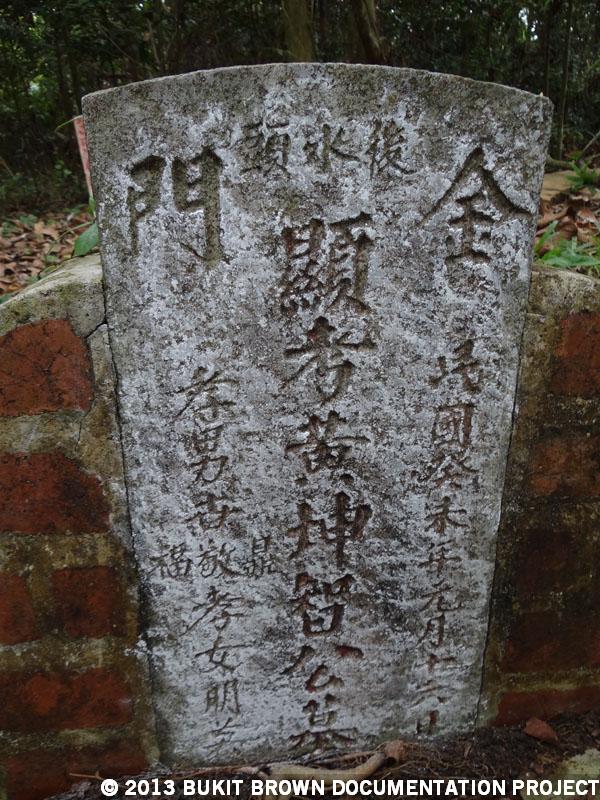 金門
後水頭
民國癸未年元月十六日
顯考黃坤智公墓
孝男世
鼎
敏
福
孝女明
© 2013 BUKIT BROWN DOCUMENTATION PROJECT